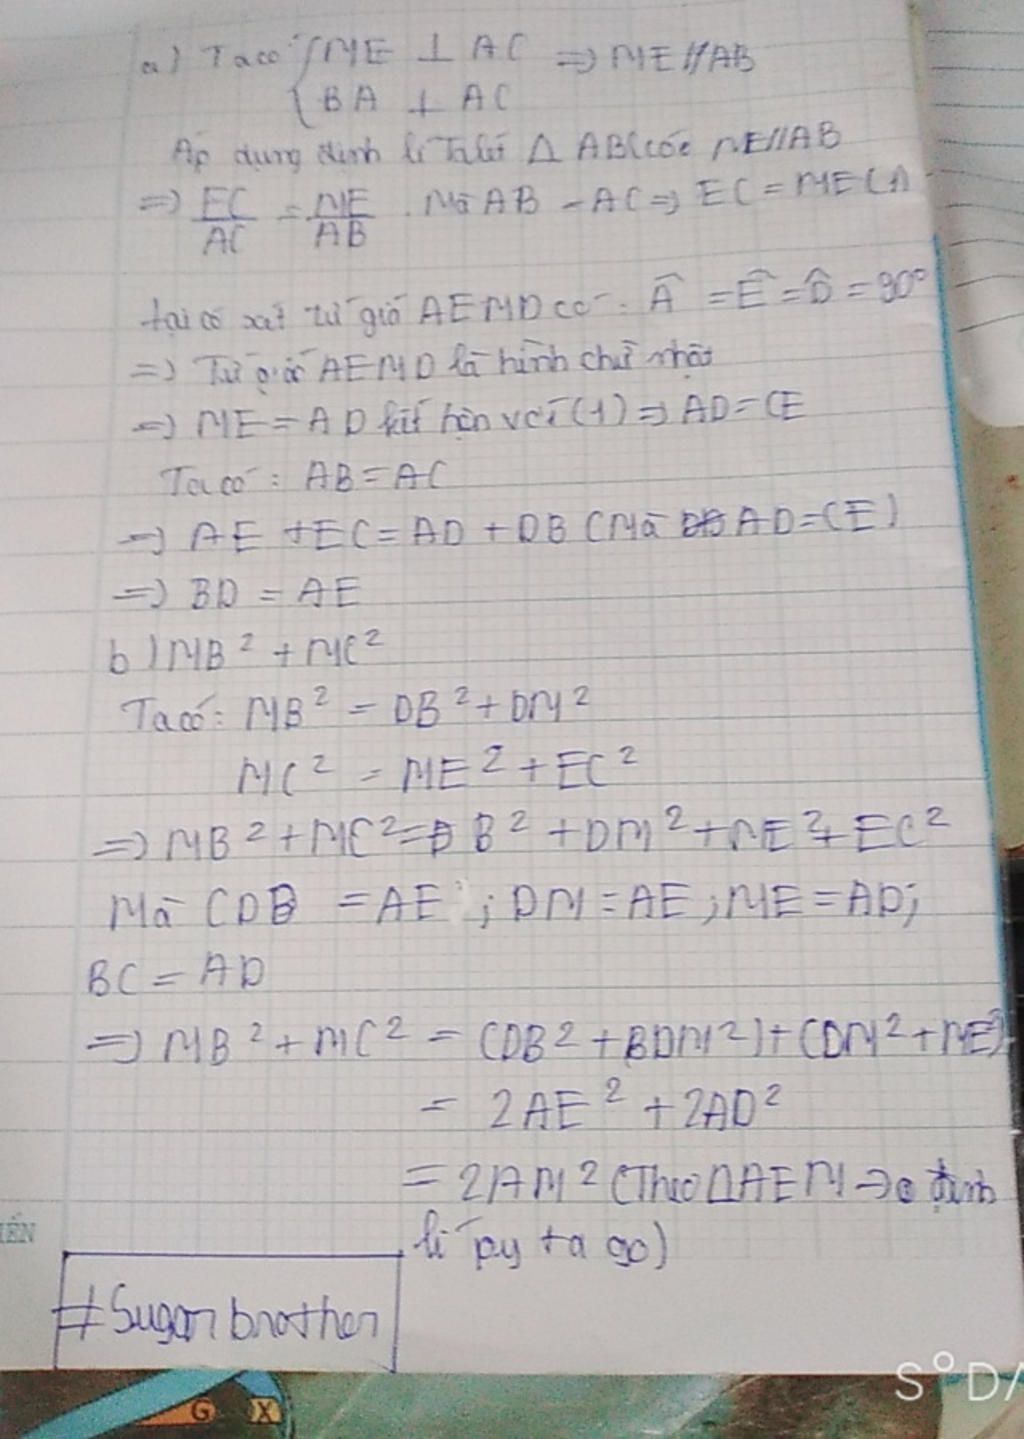 a) Ta có {ME ⊥ AC => ME//AB
{BA ⊥ AC
Áp dụng định lí Talét Δ ABC có ME//AB
=> EC/AC = ME/AB . Mà AB = AC => EC = ME (1)
tại có xét tứ giác AEMD có : Â = Ê = D̂ = 90°
=> Tứ giác AEMD là hình chữ nhật
=> ME = AD kết hợp với (1) => AD = CE
Ta có : AB = AC
=> AE + EC = AD + DB (Mà AD = CE)
=> BD = AE
b) MB² + MC²
Ta có: MB² = DB² + DM²
MC² = ME² + EC²
=> MB² + MC² = DB² + DM² + ME² + EC²
Mà CDB = AE ; DM = AE ; ME = AD;
BC = AD
=> MB² + MC² = (DB² + BDM²) + (DM² + ME²)
= 2AE² + 2AD²
= 2AM² (Theo Δ AEM => định
lí py ta go)
IẾN
#Sugar brother
G X
S°DA